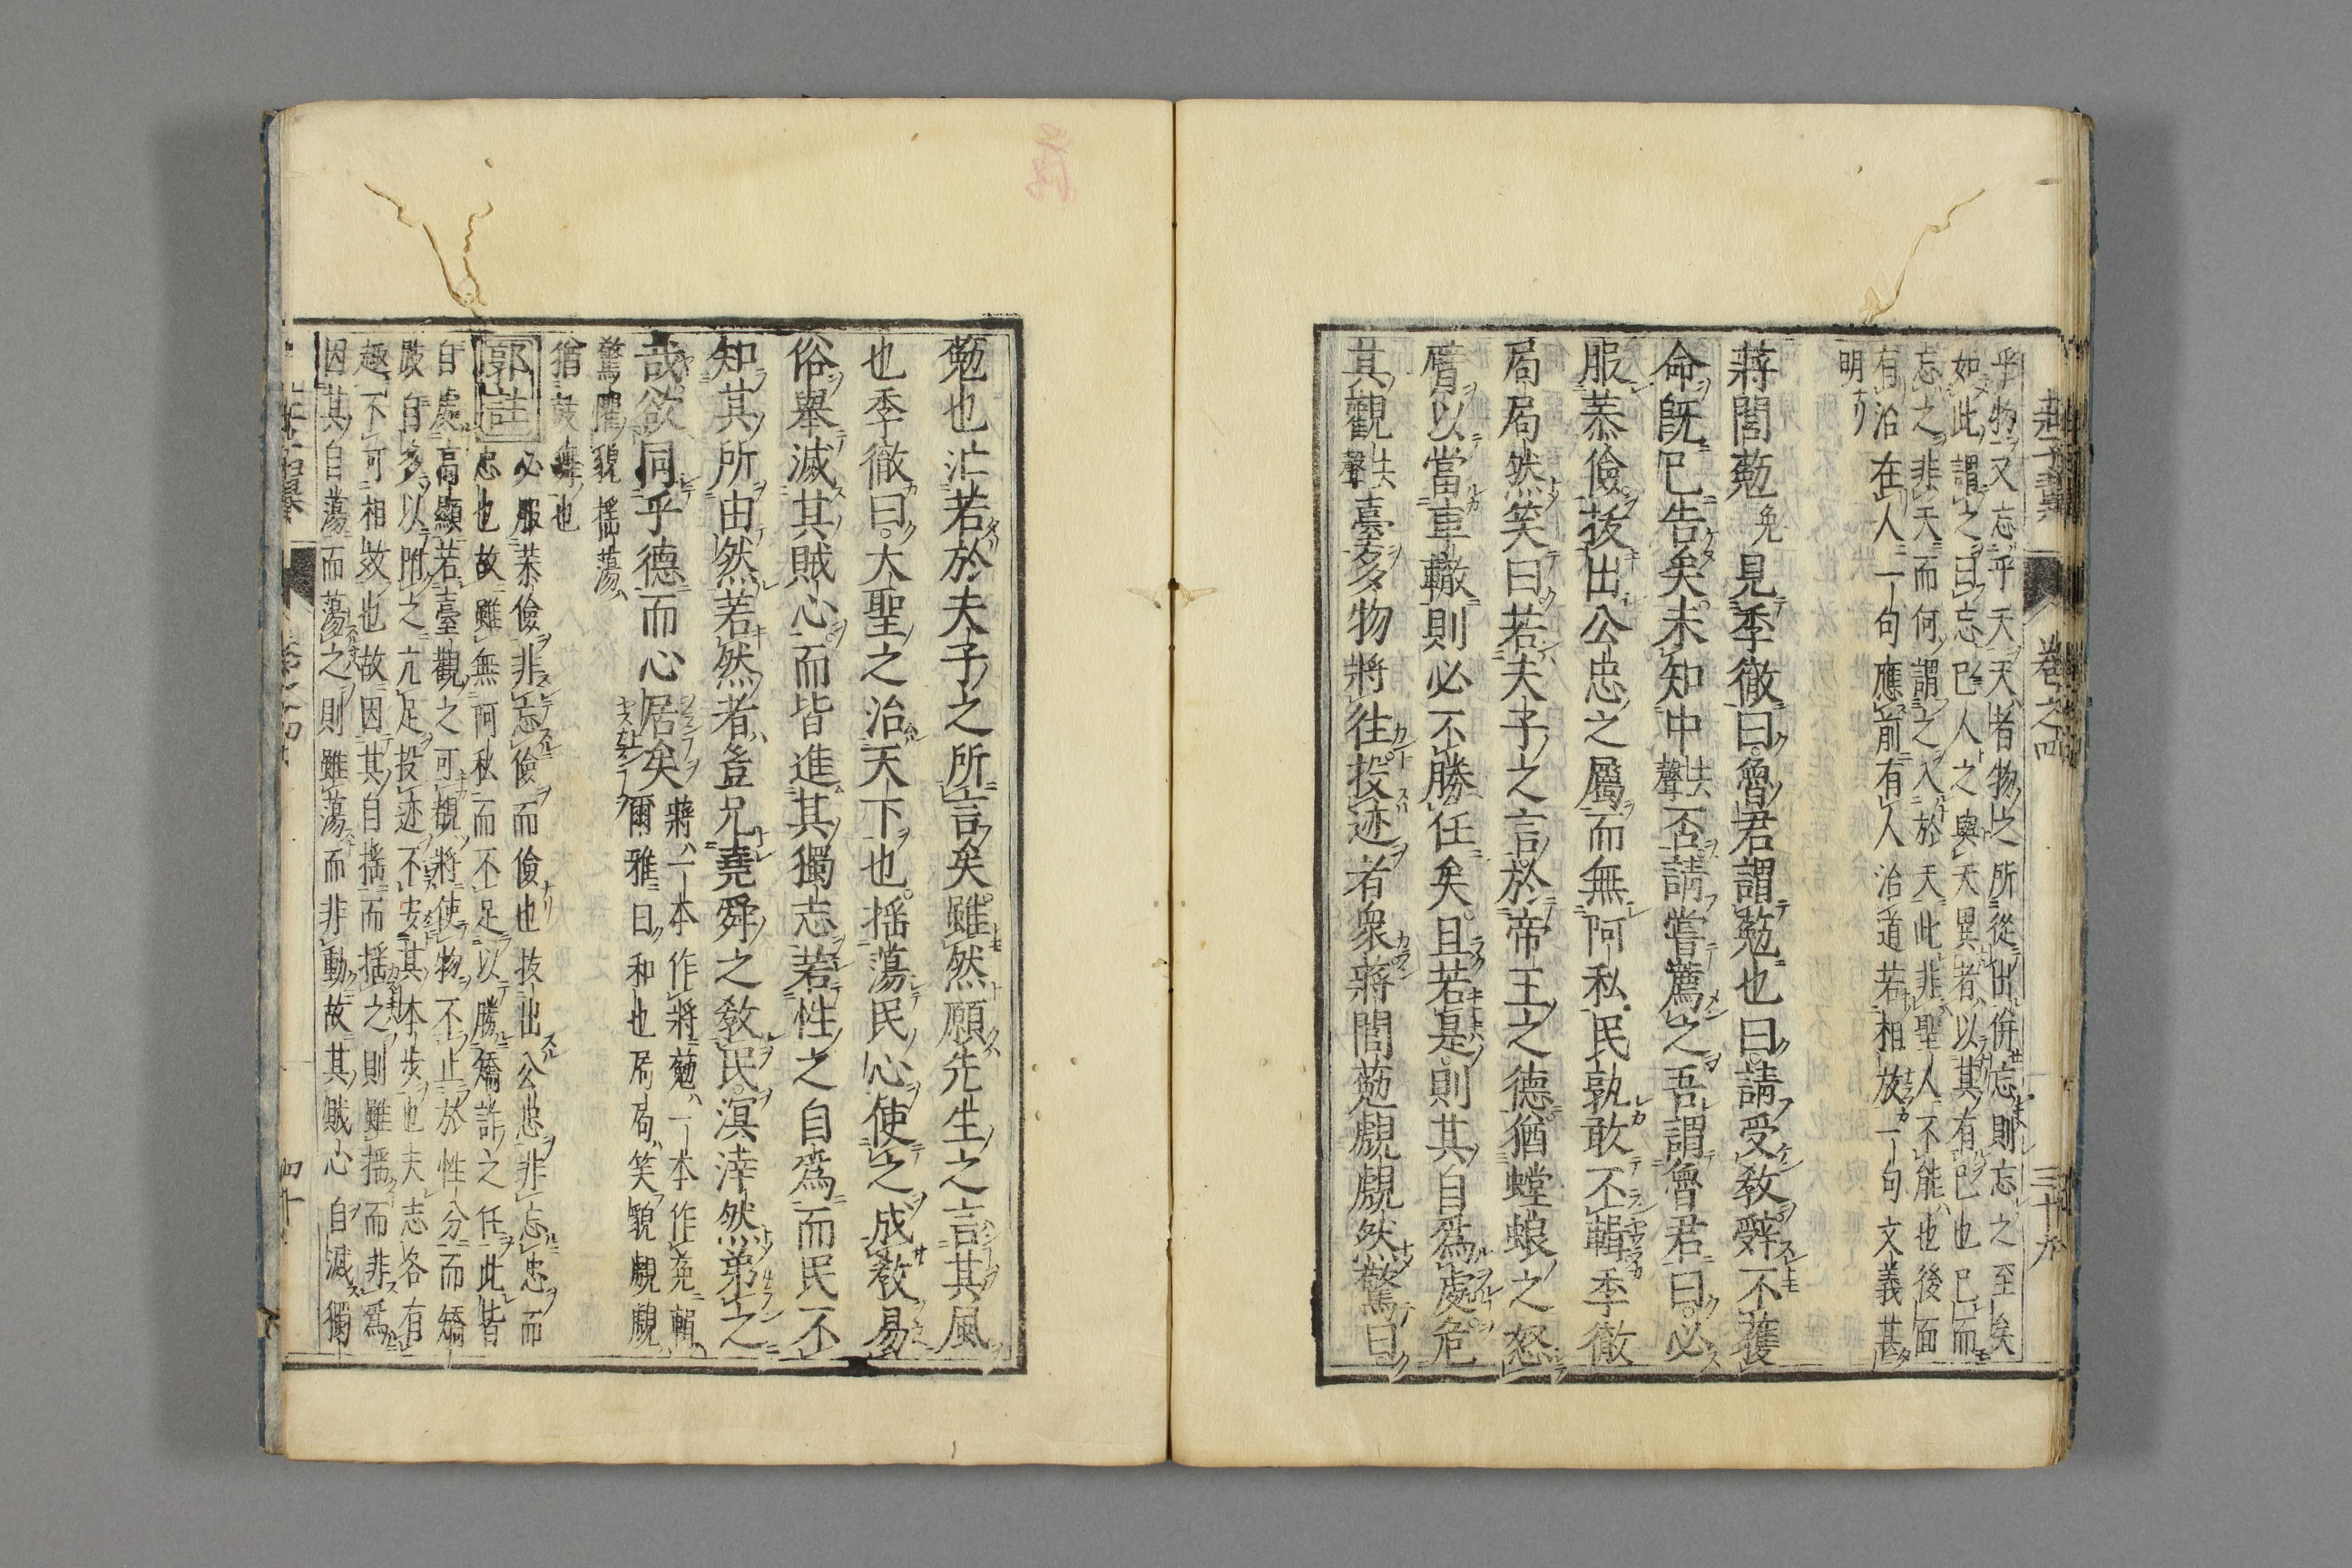 乎物又忘乎天天者物之所從出併忘則忘之至矣
如此謂之曰忘已人之與天異者以其有已也已而
忘之非天而何謂之入於天此非聖人不能也後面
有治在人一句應前有人治道若相放一句文義甚
明
蔣閭葂免見季徹曰魯君謂葂也曰請受教辭不獲
命既已告矣未知中去聲否請嘗薦之吾謂魯君曰必
服恭儉拔出公忠之屬而無阿私民孰敢不輯季徹
局局然笑曰若夫子之言於帝王之德猶螳蜋之怒
臂以當車轍則必不勝任矣且若是則其自爲處危
其觀去聲臺多物將往投迹者衆蔣閭葂覷覷然驚曰
卷之四
三十九
葂也汒若於夫子之所言矣雖然願先生之言其風
也季徹曰大聖之治天下也搖蕩民心使之成教易
俗舉滅其賊心而皆進其獨志若性之自爲而民不
知其所由然若然者豈兄堯舜之教民溟涬然弟之
哉欲同乎德而心居矣蔣一本作將葂一本作莬輯
爾雅曰和也局局笑貌覷覷
驚懼貌搖蕩
猶鼓舞也
郭註必服恭儉非忘儉而儉也拔出公忠非忘忠而
忠也故雖無阿私而不足以勝矯詐之任此皆
自處高顯若臺觀之可覩將使物不止於性分而矯
跂自多以附之亢足投迹不安其本步也夫志各有
趣不可相效也故因其自搖而搖之則雖搖而非爲
因其自蕩而蕩之則雖蕩而非動故其賊心自滅獨
四十